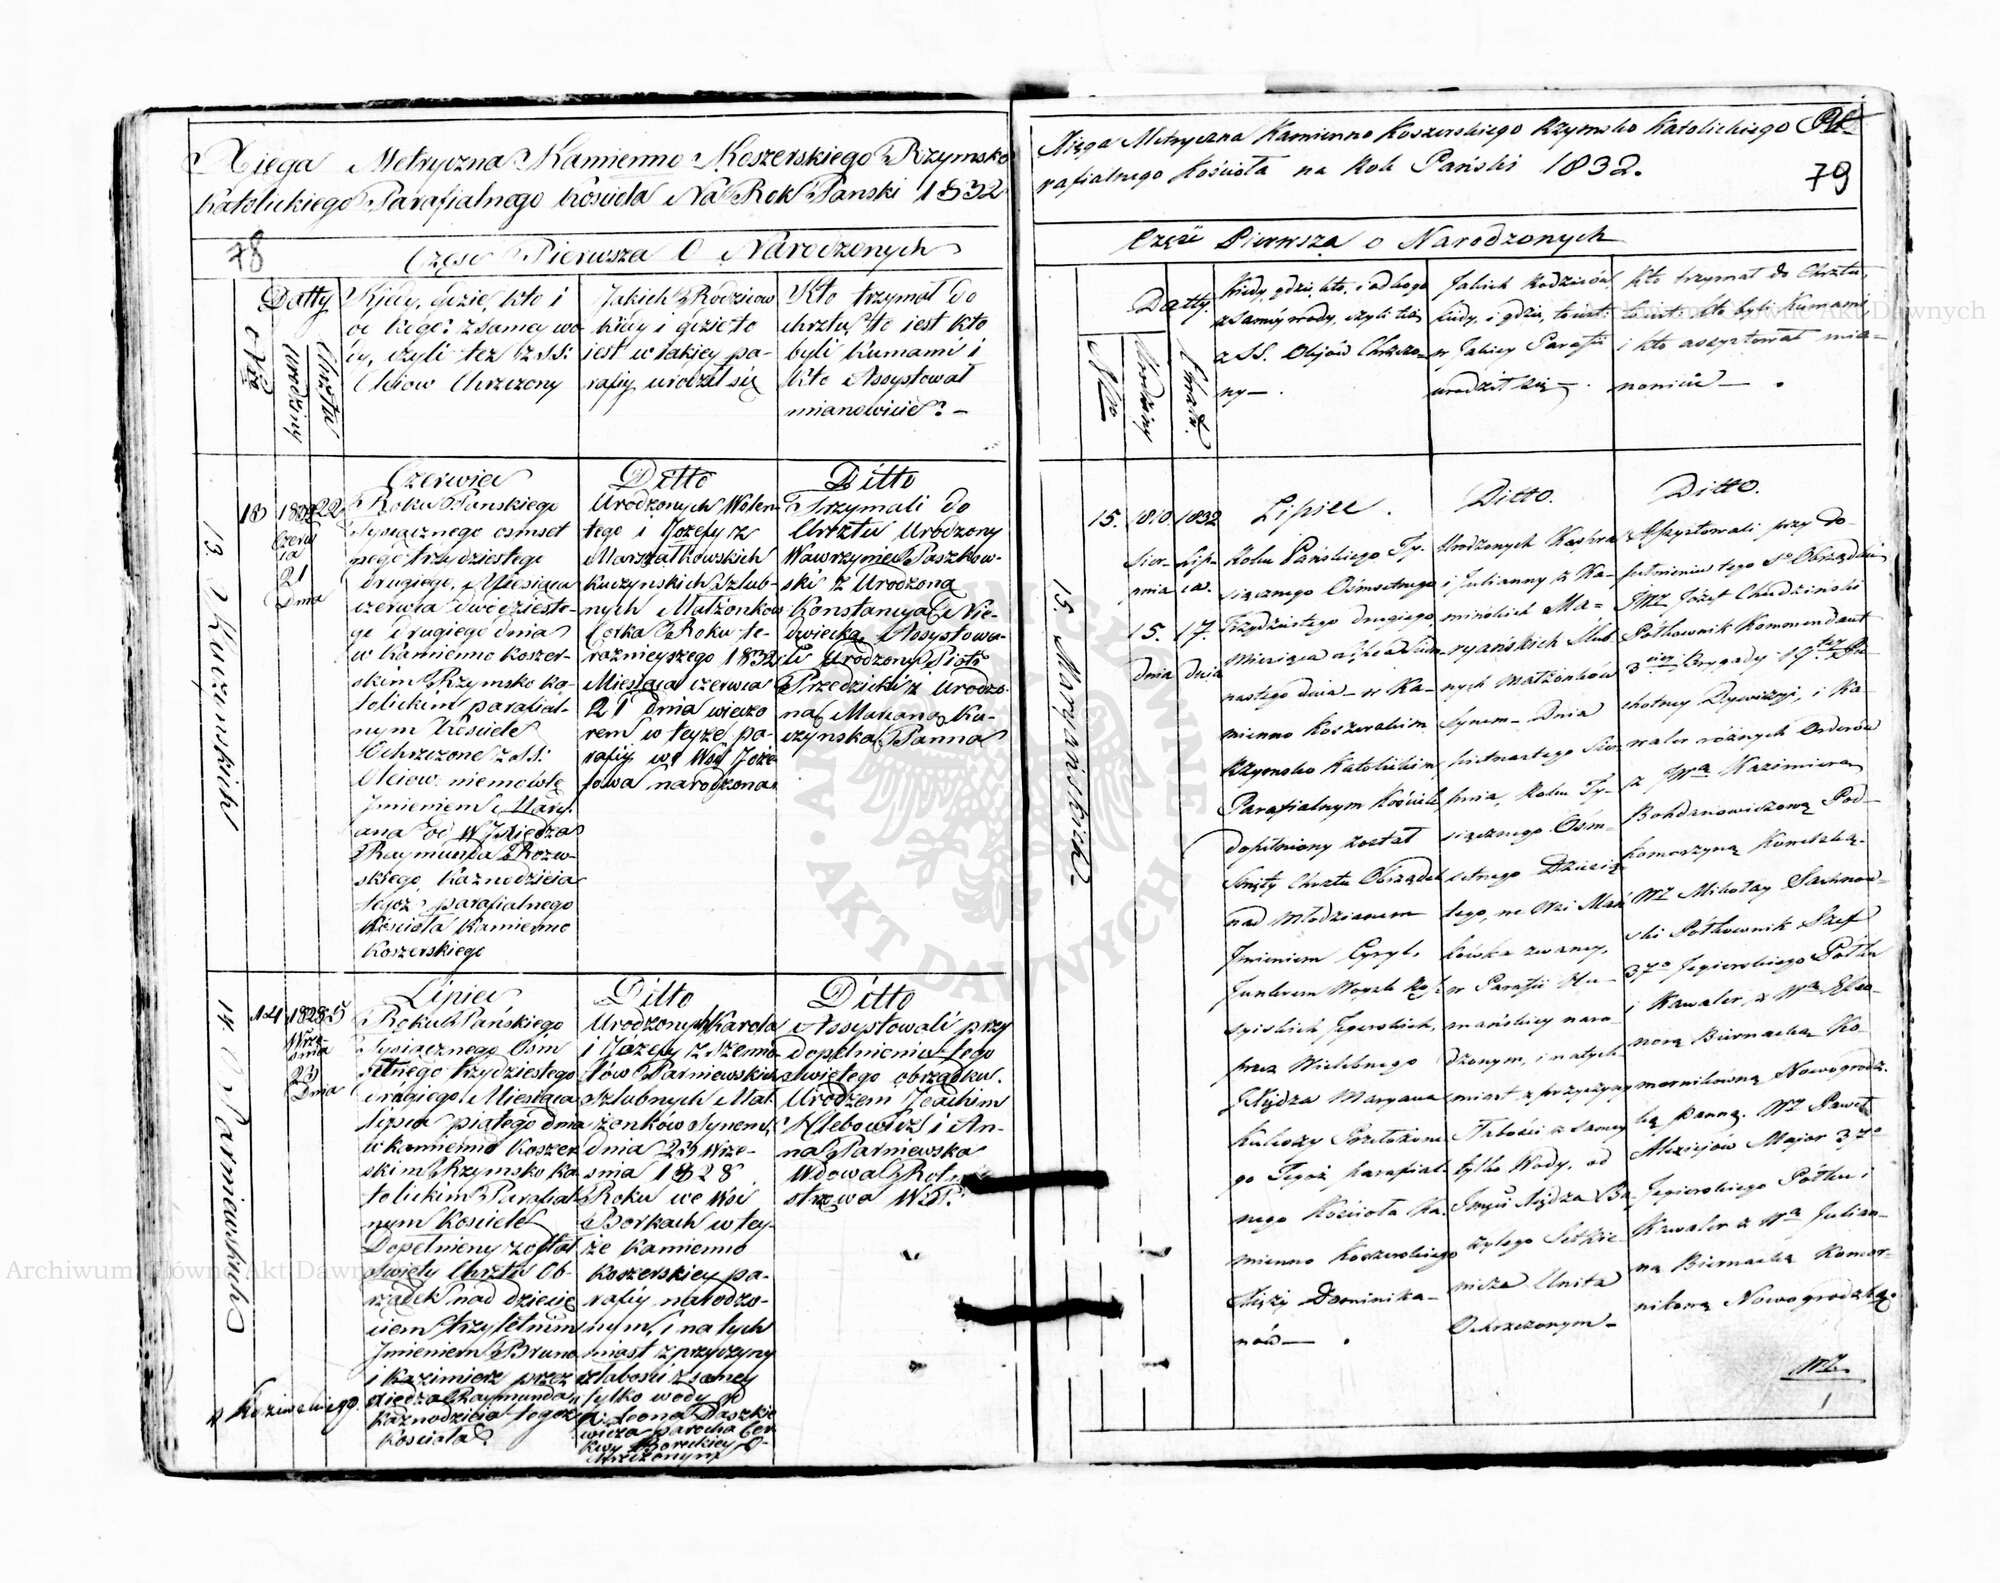 Xięga Metryczna Kamienno Koszerskiego Rzymsko
Katolickiego Parafialnego Kosciola Na Rok Panski 1832
78
Częsc Pierwsza O Narodzonych
Datty
Nro
Urodziny
Chrztu
Kiedy, gdzie, kto i
od kogo? z samey wo
dy, czyli tez z SS:
Oleiow Chrzczony
Jakich Rodzicow
kiedy i gdzie to
iest w iakiey pa-
rafiy urodzil się
Kto trzymal do
chrztu, to iest kto
byli kumami i
kto Assystowal
mianowicie? -
13. Kuczynskich
13
1832
Czerw
ca
21
Dnia
22
Czerwiec
Roku Panskiego
Tysiącznego osmset
nego trzydziestego
drugiego, Miesiąca
czerwca dwudzieste-
go drugiego dnia
w Kamienno Koszer-
skim Rzymsko ka-
tolickim parafial-
nym Kosciele
Ochrzczone z SS:
Oleiow niemowlę
Jmieniem Mary-
anna od WJ Xiędza
Raymunda
skiego Kaznodzieia
tegoz parafialnego
Kosciola Kamienno
Koszerskiego
Ditto
Urodzonych Walen-
tego i Jozefy z
Marszałkowskich
Kuczynskich Szlub-
nych Matżonkow
Corka Roku te-
raznieyszego 1832
Miesiąca czerwca
21 Dnia wieczo
rem w teyze pa-
rafiy we Wsi Joze-
fowa narodzona
Ditto
Trzymali do
Chrztu Urodzony
Wawrzyniec Paszkow-
ski z Urodzoną
Konstancyą Nie-
dzwiecką Assystowa-
li Urodzony Piotr
Przedzicki z Urodzo-
ną Maryaną Ku-
czynską Panną
14. Parniewskich
14
1828
Wrze-
snia
23
Dnia
5
Lipiec
Roku Pańskiego
Tysiącznego Osm
setnego trzydziestego
drugiego Miesiąca
lipca piątego dnia
w kamienno Koszer
skim Rzymsko Ka
tolickim Parafial-
nym Kosciele
Dopełniony został
Swięty Chrztu Ob-
rządek nad dziecię
ciem trzyletnim
Jmieniem Bruno
i Kazimierz przez
xiedza Raymunda
x Koziewskiego
Kaznodzieia tegoz
Kosciola
Ditto
Urodzonych Karola
i Jozefy z Szemio-
tów Parniewskich
Szlubnych Mał
żonków Synem,
dnia 23 Wrze-
snia 1828
Roku we Wsi
Borkach w tey-
że Kamienno
Koszerskiey pa-
rafiy narodzo-
nym, i na tych
miast z przyczyny
słabości z samey
tylko wody od
x: Leona Daszkie
wicza parocha Cer
kwi Boreckiey O-
chrzczonym
Ditto
Assystowali przy
dopełnieniu tego
Swiętego obrządku.
Urodzeni Joachim
Hlebowicz i An-
na Parniewska
Wdowa Rotmi-
strzowa W: P:
Xięga Metryczna Kamienno Koszerskiego Rzymsko Katolickiego Pa-
rafialnego Kościoła na Rok Pański 1832.
79
Część Pierwsza o Narodzonych
Datty.
Nro
Urodziny
Chrztu.
Kiedy, gdzie, kto, i od kogo
z saméy wody, czyli też
z SS. Olejów Chrzczo-
ny-.
Jakich Rodziców
kiedy, i gdzie, to iest:
w Jakiey Parafii
urodził się-.
Kto trzymał do Chrztu,
to iest: kto byli Kumami
i kto assystował mia-
nowicie-.
15. Maryańskich
15.
1810
Sier-
pnia
15.
dnia
1832
Lip-
ca.
17.
dnia
Lipiec.
Roku Pańskiego Ty-
siącznego Ośmsetnego
Trzydziestego drugiego
Miesiąca Lipca Siedm-
nastego dnia w Ka-
mienno Koszerskim
Rzymsko Katolickim
Parafialnym Kościele
dopełniony został
Święty Chrztu Obrządek
nad Młodzianem
Jmieniem Cyryl,
Junkrem Woysk Ros-
syiskich Jegierskich,
przez Wielebnego
Xiędza Maryana
Kuleszy Przełożone
go Tegoż parafial-
nego Kościoła Ka-
mienno Koszerskiego
Xięży Dominika-
nów-.
Ditto.
Urodzonych Kaspra
i Julianny z Ka-
mińskich Ma-
ryańskich Szlub
nych Małżonków
Synem- Dnia
Piętnastego Sier
pnia, Roku Ty-
siącznego Ośm-
setnego Dziesią-
tego, we Wsi Mań
kówka zwaney,
w Parafii Hu-
mańskiey naro-
dzonym, i natych
miast z przyczyny
słabości z samey
tylko Wody, od
Jmci Xiędza Ba
zylego Setkie
wicza Unita
Ochrzczonym-
Ditto.
Assystowali przy do-
pełnieniu tego So Obrządku
JWJ Józef Chudziński
Półkownik Kommendant
3ciey Brygady 17tey Pie
chotney Dywizyi, i Ka-
waler różnych Orderów
z JWą Kazimierą
Bohdanowiczową Pod-
komorzyną Kowelską.
WJ Mikołay Sachnow-
ski Półkownik Szef
37o Jegierskiego Półku
i Kawaler, z Wą Eleo-
norą Biernacką Ko-
mornikówną Nowogrodz-
ką panną. WJ Paweł
Alexiejów Major 37o
Jegierskiego Półku i
Kawaler z Wą Julian-
ną Biernacką Komor-
nikową Nowogrodzką.
Archiwum Główne Akt Dawnych
Archiwum Główne Akt Dawnych